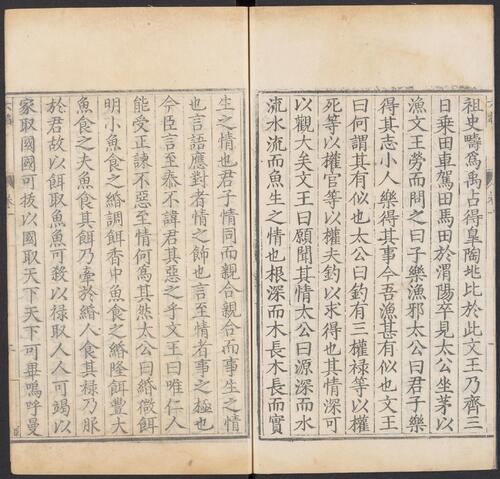 祖史疇爲禹占得皐陶兆比於此文王乃齊三
日乗田車駕田馬田於渭陽卒見太公坐茅以
漁文王勞而問之曰子樂漁邪太公曰君子樂
得其志小人樂得其事今吾漁甚有似也文王
曰何謂其有似也太公曰釣有三權禄等以權
死等以權官等以權夫釣以求得也其情深可
以觀大矣文王曰願聞其情太公曰源深而水
流水流而魚生之情也根深而木長木長而實
生之情也君子情同而親合親合而事生之情
也言語應對者情之飾也言至情者事之極也
今臣言至情不諱君其惡之乎文王曰唯仁人
能受正諫不惡至情何爲其然太公曰緡微餌
明小魚食之緡調餌香中魚食之緡隆餌豐大
魚食之夫魚食其餌乃牽於緡人食其禄乃服
於君故以餌取魚魚可殺以禄取人人可竭以
家取國國可拔以國取天下天下可畢嗚呼曼
六韜
卷一
一